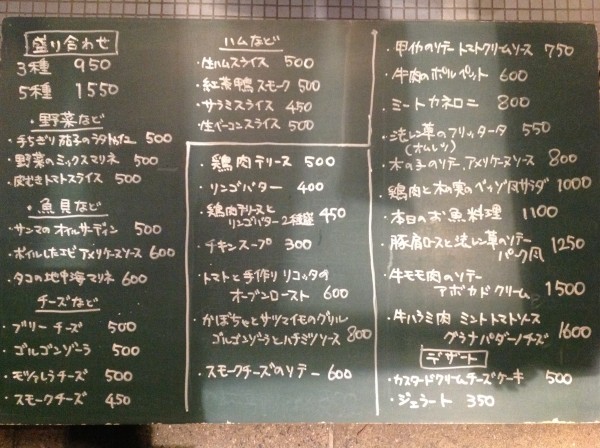 盛り合わせ
3種 950
5種 1550
・野菜など
・手ちぎり茄子のラタトゥユ 500
・野菜のミックスマリネ 500
・炭せきトマトスライス 500
・魚貝など
・サンマのオイルサーディン 500
・ボイルしたエビアメリケーヌソース 600
・タコの地中海マリネ 600
チーズなど
・ブリーチーズ 500
・ゴルゴンゾーラ 500
・モッツァレラチーズ 500
・スモークチーズ 450
ハムなど
・生ハムスライス 500
・紅茶鴨スモーク 500
・サラミスライス 450
・生ベーコンスライス 500
・鶏肉テリーヌ 500
・リンゴバター 400
・鶏肉テリーヌと
リンゴバター2種盛 450
・チキンスープ 300
・トマトと手作りリコッタの
オーブンロースト 600
・かぼちゃとサツマイモのグリル
ゴルゴンゾーラとハチミツソース 800
・スモークチーズのソテー 600
・甲イカのソテートマトクリームソース 750
・牛肉のポルペット 600
・ミートカネロニ 800
・ほうれん草のフリッタータ 550
(オムレツ)
・木の子のソテー、アメリケーヌソース 800
・鶏肉と木の実のペッソ風サラダ 1000
・本日のお魚料理 1100
・豚肩ロースとほうれん草のソテー
パーク風 1250
・牛モモ肉のソテー
アボカドクリーム 1500
・牛ハラミ肉 ミントトマトソース
グラナパダーノチーズ 1600
デザート
・カスタードクリームチーズケーキ 500
・ジェラート 350